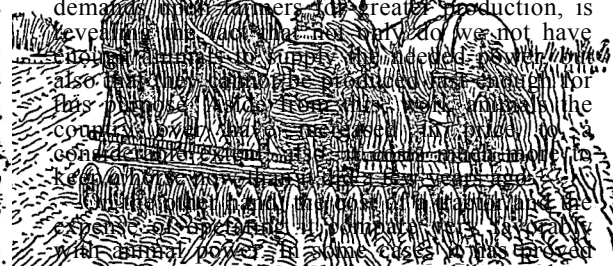 demands upon farmers for greater production, is
revealing the fact that not only do we not have
enough animals to supply the needed power, but
also that they cannot be produced fast enough for
this purpose. Aside from this, work animals the
country over have increased in price to a
considerable extent, also it costs much more to
keep a horse now than it did a few years ago.
On the other hand, the cost of a tractor and the
expense of operating it compare very favorably
with animal power. In some cases it has proved